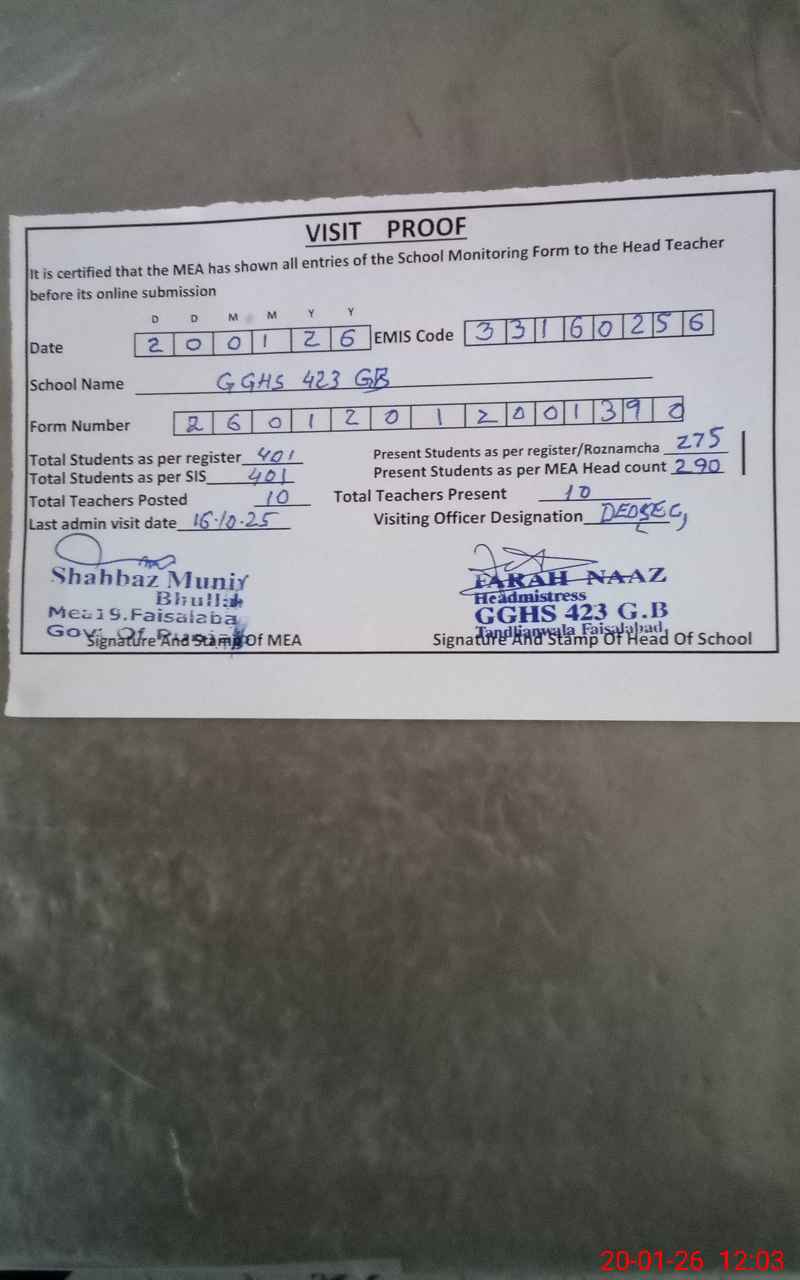 VISIT PROOF
It is certified that the MEA has shown all entries of the School Monitoring Form to the Head Teacher
before its online submission
D D M M Y Y
Date 2 0 0 1 2 6 EMIS Code 3 3 1 6 0 2 5 6
School Name GGHS 423 GB
Form Number 2 6 0 1 2 0 1 2 0 0 1 3 9 0
Total Students as per register 401 Present Students as per register/Roznamcha 275
Total Students as per SIS 401 Present Students as per MEA Head count 290
Total Teachers Posted 10 Total Teachers Present 10
Last admin visit date 16.10.25 Visiting Officer Designation DEOSEC
Shahbaz Munir
Bhullah
Mea19.Faisalaba
Gov: Of
Signature And Stamp Of MEA
FARAH NAAZ
Headmistress
GGHS 423 G.B
Tandlianwala Faisalabad
Signature And Stamp Of Head Of School
20-01-26 12:03